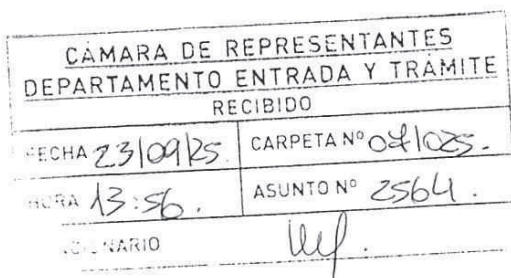 CÁMARA DE REPRESENTANTES
DEPARTAMENTO ENTRADA Y TRÁMITE
RECIBIDO
FECHA 23/09/25. CARPETA Nº
HORA 13:56. ASUNTO Nº 2564.